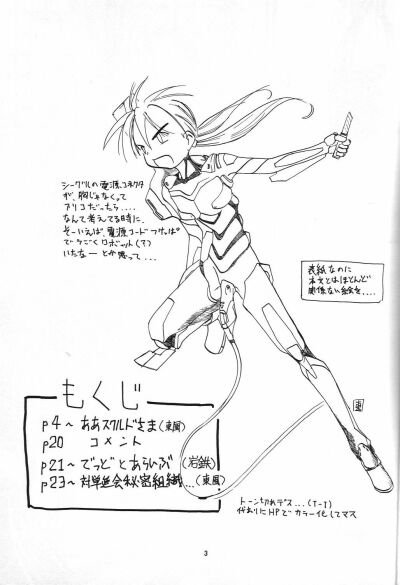 シーグルの電源コネクタ
が、胸じゃなくって
アソコだったら....
なんて考えてる時に、
そーいえば、電源コードつければ
でうごくロボット(?)
いたなー とか思って...
表紙なのに
本文とはほとんど
関係ない絵を....
もくじ
p4〜 ああスクルドさま(東風)
p20 コメント
p21〜 でっどとあらいぶ(岩鉄)
p23〜 対単進会秘密組織...(東風)
トーン切れデス...(T-T)
代わりにHPでカラー化してマス
3